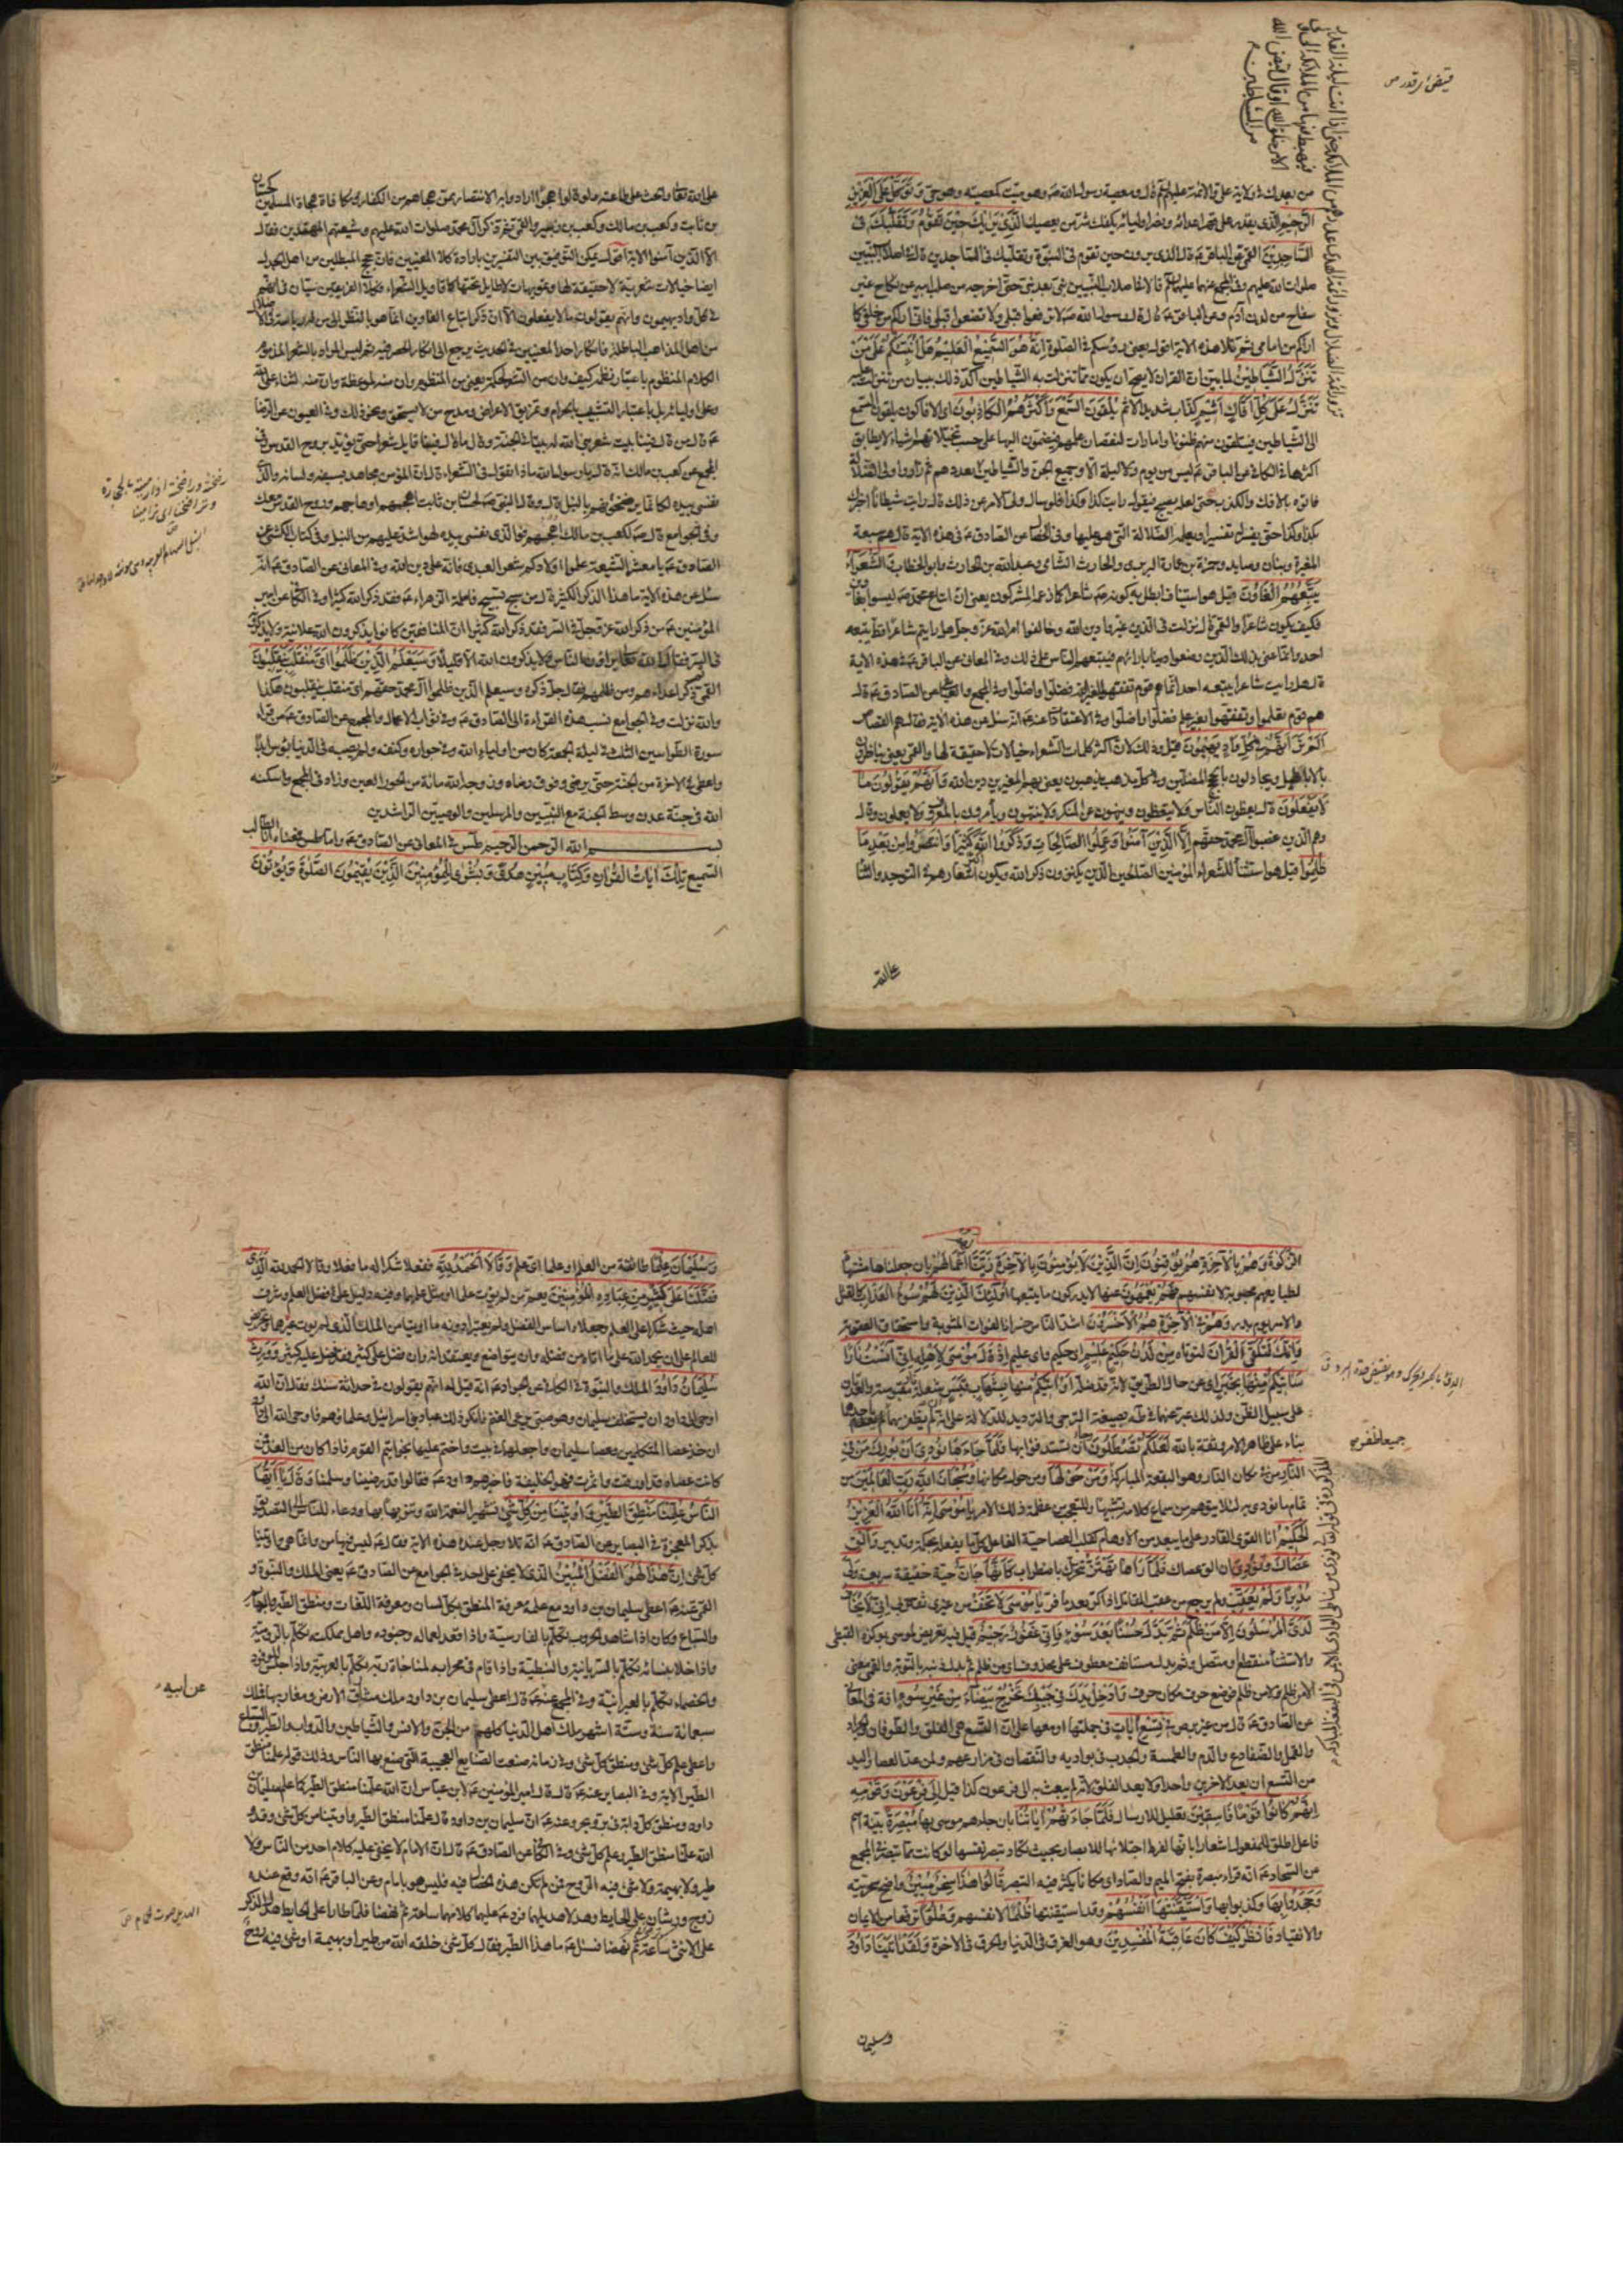 من بعدك في ولاية علي والائمة عليهم السلم قال ومعصية رسول الله ص وهو ميت كمعصيته وهو حي وَتَوَكَّلْ عَلَى الْعَزِيزِ
الرَّحِيمِ الذي يقدر على قهر اعدائه ونصر اوليائه يكفك شر من يعصيك الَّذِي يَرَاكَ حِينَ تَقُومُ وَتَقَلُّبَكَ فِي
السَّاجِدِينَ القمي عن الباقر ع قال الذي يراك حين تقوم في النبوة وتقلبك في الساجدين قال في اصلاب النبيين
صلوات الله عليهم وفي المجمع عنهما عليهما السلم قالا في اصلاب النبيين نبي بعد نبي حتى اخرجه من صلب ابيه عن نكاح غير
سفاح من لدن آدم وعن الباقر ع قال قال رسول الله ص لا ترفعوا قبلي ولا تضعوا قبلي فاني اراكم من خلفي كما
اراكم من امامي ثم تلا هذه الاية اقول يعني رؤسكم في الصلوة إِنَّهُ هُوَ السَّمِيعُ الْعَلِيمُ هَلْ أُنَبِّئُكُمْ عَلَى مَنْ
تَنَزَّلُ الشَّيَاطِينُ لما بين ان القران لا يصح ان يكون مما تنزلت به الشياطين اكد ذلك ببيان من تنزلت عليه
تَنَزَّلُ عَلَى كُلِّ أَفَّاكٍ أَثِيمٍ كذاب شديد الاثم يُلْقُونَ السَّمْعَ وَأَكْثَرُهُمْ كَاذِبُونَ اي الافاكون يلقون السمع
الى الشياطين فيتلقون منهم ظنونا وامارات لنقصان علمهم فيضمون اليها على حسب تخيلاتهم اشياء لا يطابق
اكثرها في الكافي عن الباقر ع ليس من يوم ولا ليلة الا وجميع الجن والشياطين
فاتوه بالافك والكذب حتى لعله يصبح فيقول رايت كذا وكذا فلو سال ولي الامر عن ذلك قال رايت شيطانا اخبرك
بكذا وكذا حتى يفسر له تفسيرا ويعلمه الضلالة التي هو عليها وفي الخصال عن الصادق ع في هذه الاية قال هم سبعة
المغيرة وبنان وصايد وحمزة بن عمارة البربري والحارث الشامي وعبد الله بن الحارث وابو الخطاب الشُّعَرَاءُ
يَتَّبِعُهُمُ الْغَاوُونَ قيل هو استيناف ابطل به كونه ص شاعرا كما زعمه المشركون يعني ان اتباع محمد ص ليسوا بغاوين
فكيف يكون شاعرا والقمي قال نزلت في الذين غيروا دين الله وخالفوا امر الله عز وجل هل رايتم شاعرا قط يتبعه
احد وانما عنى بذلك الذين وضعوا دينا بارائهم فيتبعهم الناس على ذلك وفي المعاني عن الباقر ع في هذه الاية
قال هل رايت شاعرا يتبعه احد انما هم قوم تفقهوا لغير الدين فضلوا واضلوا وفي المجمع والعياشي عن الصادق ع قال
هم قوم تعلموا وتفقهوا بغير علم فضلوا واضلوا وفي الاعتقادات عنه ع انه سئل عن هذه الاية فقال هم القصاص
أَلَمْ تَرَ أَنَّهُمْ فِي كُلِّ وَادٍ يَهِيمُونَ قيل وذلك لان اكثر كلمات الشعراء خيالات لا حقيقة لها والقمي يعني يناظرون
بالاباطيل ويجادلون بالحجج المضلين وفي كل مذهب يذهبون يعني بهم المغيرين دين الله وَأَنَّهُمْ يَقُولُونَ مَا
لَا يَفْعَلُونَ قال يعظون الناس ولا يتعظون وينهون عن المنكر ولا ينتهون ويأمرون بالمعروف ولا يعملون قال
وهم الذين غصبوا آل محمد حقهم إِلَّا الَّذِينَ آمَنُوا وَعَمِلُوا الصَّالِحَاتِ وَذَكَرُوا اللَّهَ كَثِيرًا وَانْتَصَرُوا مِنْ بَعْدِ مَا
ظُلِمُوا قيل هو استثناء للشعراء المؤمنين الصالحين الذين يكثرون ذكر الله ويكون اكثر اشعارهم في التوحيد والثناء
على الله
على الله تعالى والحث على طاعته ولو قالوا هجوا ارادوا به الانتصار ممن هجاهم من الكفار ومكافاة هجاة المسلمين كحسان
بن ثابت وكعب بن مالك وكعب بن زهير والقمي ثم ذكر آل محمد صلوات الله عليهم وشيعتهم المهتدين فقال
الا الذين آمنوا الاية اقول يمكن التوفيق بين التفسيرين بارادة كلا المعنيين فان حجج المبطلين من اهل الجدل
ايضا خيالات شعرية لا حقيقة لها وتمويهات لا طايل تحتها كاقاويل الشعراء وكلا الفريقين سيان في انهم
في كل واد يهيمون وانهم يقولون ما لا يفعلون الا ان ذكر اتباع الغاوين انما هو بالنظر الى من له رياسة في الاضلال
من اهل المذاهب الباطلة فانكار احد المعنيين في الحديث يرجع الى انكار الحصر فيه ثم ليس المراد بالشعر المذموم
الكلام المنظوم باعتبار نظمه كيف وان من الشعر لحكمة يعني من المنظوم وان منه لموعظة وان منه لثناء على الله
وعلى اوليائه بل باعتبار التشبيب بالحرام وتمزيق الاعراض ومدح من لا يستحق ونحو ذلك وفي العيون عن الرضا
ع قال من قال فينا بيت شعر بنى الله له بيتا في الجنة وقال ما قال فينا قايل شعرا حتى يؤيد بروح القدس وفي
المجمع عن كعب بن مالك انه قال يا رسول الله ماذا تقول في الشعراء قال ان المؤمن مجاهد بسيفه ولسانه والذي
نفسي بيده لكانما يرضخونهم بالنبل قال وقال النبي ص لحسان بن ثابت اهجهم او هاجهم وروح القدس معك
وفي الجوامع قال ص لكعب بن مالك اهجهم فوالذي نفسي بيده لهو اشد عليهم من النبل وفي كتاب الكشي عن
الصادق ع يا معشر الشيعة علموا اولادكم شعر العبدي فانه على دين الله وفي المعاني عن الصادق ع انه
سئل عن هذه الاية ما هذا الذكر الكثير قال من سبح تسبيح فاطمة الزهراء ع فقد ذكر الله كثيرا وفي الكافي عن امير
المؤمنين ع من ذكر الله عز وجل في السر فقد ذكر الله كثيرا ان المنافقين كانوا يذكرون الله علانية ولا يذكرونه
في السر فقال الله تعالى يراؤن الناس ولا يذكرون الله الا قليلا وَسَيَعْلَمُ الَّذِينَ ظَلَمُوا أَيَّ مُنْقَلَبٍ يَنْقَلِبُونَ
القمي ثم ذكر اعداءهم ومن ظلمهم فقال جل ذكره وسيعلم الذين ظلموا آل محمد حقهم اي منقلب ينقلبون هكذا
والله نزلت وفي الجوامع نسب هذه القراءة الى الصادق ع وفي ثواب الاعمال والمجمع عن الصادق ع من قرأ
سورة الطواسين الثلث في ليلة الجمعة كان من اولياء الله وفي جواره وكنفه ولم يصبه في الدنيا بؤس ابدا
واعطي في الاخرة من الجنة حتى يرضى وفوق رضاه وزوجه الله مائة من الحور العين وزاد في المجمع واسكنه
الله في جنة عدن وسط الجنة مع النبيين والمرسلين والوصيين الراشدين
بسم الله الرحمن الرحيم طس في المعاني عن الصادق ع واما طس فمعناه انا الطالب
السميع تِلْكَ آيَاتُ الْقُرْآنِ وَكِتَابٍ مُبِينٍ هُدًى وَبُشْرَى لِلْمُؤْمِنِينَ الَّذِينَ يُقِيمُونَ الصَّلَوةَ وَيُؤْتُونَ
الزَّكَوةَ وَهُمْ بِالْآخِرَةِ هُمْ يُوقِنُونَ إِنَّ الَّذِينَ لَا يُؤْمِنُونَ بِالْآخِرَةِ زَيَّنَّا لَهُمْ أَعْمَالَهُمْ بان جعلناها مشتهاة
لطباعهم محبوبة لانفسهم فَهُمْ يَعْمَهُونَ عنها لا يدركون ما يتبعها أُولَئِكَ الَّذِينَ لَهُمْ سُوءُ الْعَذَابِ كالقتل
والاسر يوم بدر وَهُمْ فِي الْآخِرَةِ هُمُ الْأَخْسَرُونَ اشد الناس خسرانا لفوات المثوبة واستحقاق العقوبة
وَإِنَّكَ لَتُلَقَّى الْقُرْآنَ لتؤتاه مِنْ لَدُنْ حَكِيمٍ عَلِيمٍ اي حكيم واي عليم إِذْ قَالَ مُوسَى لِأَهْلِهِ إِنِّي آنَسْتُ نَارًا
سَآتِيكُمْ مِنْهَا بِخَبَرٍ اي عن حال الطريق لانه قد ضله أَوْ آتِيكُمْ بِشِهَابٍ قَبَسٍ شعلة نار مقبوسة والعدتان
على سبيل الظن ولذلك عبر عنهما في طه بصيغة الترجي والترديد للدلالة على انه ان لم يظفر بهما لم يعدم احدهما
بناء على ظاهر الامر وثقة بالله لَعَلَّكُمْ تَصْطَلُونَ رجاء ان تستدفؤا بها فَلَمَّا جَاءَهَا نُودِيَ أَنْ بُورِكَ مَنْ فِي
النَّارِ من في مكان النار وهو البقعة المباركة وَمَنْ حَوْلَهَا ومن حول مكانها وَسُبْحَانَ اللَّهِ رَبِّ الْعَالَمِينَ من
تمام ما نودي به لئلا يتوهم من سماع كلامه تشبيها وللتعجيب من عظمة ذلك الامر يَا مُوسَى إِنَّهُ أَنَا اللَّهُ الْعَزِيزُ
الْحَكِيمُ انا القوي القادر على ما يبعد من الاوهام كقلب العصا حية الفاعل كل ما يفعله بحكمة وتدبير وَأَلْقِ
عَصَاكَ ونودي ان الق عصاك فَلَمَّا رَآهَا تَهْتَزُّ تتحرك باضطراب كَأَنَّهَا جَانٌّ حية خفيفة سريعة وَلَّى
مُدْبِرًا وَلَمْ يُعَقِّبْ ولم يرجع من عقب المقاتل اذا كر بعد ما فر يَا مُوسَى لَا تَخَفْ من غيري ثقة بي إِنِّي لَا يَخَافُ
لَدَيَّ الْمُرْسَلُونَ إِلَّا مَنْ ظَلَمَ ثُمَّ بَدَّلَ حُسْنًا بَعْدَ سُوءٍ فَإِنِّي غَفُورٌ رَحِيمٌ قيل فيه تعريض لموسى بوكزه القبطي
والاستثناء منقطع او متصل وثم بدل مستانف معطوف على محذوف اي من ظلم ثم بدل ذنبه بالتوبة والقمي معنى
الا من ظلم ولا من ظلم فوضع حرف مكان حرف وَأَدْخِلْ يَدَكَ فِي جَيْبِكَ تَخْرُجْ بَيْضَاءَ مِنْ غَيْرِ سُوءٍ آفة في المعاني
عن الصادق ع قال من غير برص فِي تِسْعِ آيَاتٍ في جملتها او معها على ان التسع هي الفلق والطوفان والجراد
والقمل والضفادع والدم والطمسة والجدب في بواديهم والنقصان في مزارعهم ولمن عد العصا واليد
من التسع ان يعد الاخيرين واحدا ولا يعد الفلق لانه لم يبعث به الى فرعون كذا قيل إِلَى فِرْعَوْنَ وَقَوْمِهِ
إِنَّهُمْ كَانُوا قَوْمًا فَاسِقِينَ تعليل للارسال فَلَمَّا جَاءَتْهُمْ آيَاتُنَا بان جاءهم موسى بها مُبْصِرَةً بينة اسم
فاعل اطلق للمفعول اشعارا بانها لفرط اجتلائها للابصار بحيث تكاد تبصر نفسها لو كانت مما تبصر في المجمع
عن السجاد ع انه قرأ مبصرة بفتح الميم والصاد اي مكانا يكثر فيه التبصر قَالُوا هَذَا سِحْرٌ مُبِينٌ واضح سحريته
وَجَحَدُوا بِهَا وكذبوا بها وَاسْتَيْقَنَتْهَا أَنْفُسُهُمْ وقد استيقنتها ظُلْمًا لانفسهم وَعُلُوًّا ترفعا من الايمان
والانقياد فَانْظُرْ كَيْفَ كَانَ عَاقِبَةُ الْمُفْسِدِينَ وهو الغرق في الدنيا والحرق في الاخرة وَلَقَدْ آتَيْنَا دَاوُدَ
وسليمان
وَسُلَيْمَانَ عِلْمًا طائفة من العلم او علما اي علم وَقَالَا الْحَمْدُ لِلَّهِ ففعلا شكرا له ما فعلا وقالا الحمد لله الَّذِي
فَضَّلَنَا عَلَى كَثِيرٍ مِنْ عِبَادِهِ الْمُؤْمِنِينَ يعم من لم يؤت علما او مثل علمهما وفيه دليل على فضل العلم وشرف
اهله حيث شكرا على العلم وجعلاه اساس الفضل ولم يعتبرا دونه ما اوتيا من الملك الذي لم يؤت غيرهما وتحريض
للعالم على ان يحمد الله على ما آتاه من فضله وان يتواضع ويعتقد انه وان فضل على كثير فقد فضل عليه كثير وَوَرِثَ
سُلَيْمَانُ دَاوُدَ الملك والنبوة في الكافي عن الجواد ع انه قيل له انهم يقولون في حداثة سنك فقال ان الله
اوحى الى داود ان يستخلف سليمان وهو صبي يرعى الغنم فانكر ذلك عباد بني اسرائيل وعلماؤهم فاوحى الله الى داود
ان خذ عصا المتكلمين وعصا سليمان واجعلها في بيت واختم عليها بخواتيم القوم فاذا كان من الغد فمن
كانت عصاه قد اورقت واثمرت فهو الخليفة فاخبرهم داود ع فقالوا قد رضينا وسلمنا وَقَالَ يَا أَيُّهَا
النَّاسُ عُلِّمْنَا مَنْطِقَ الطَّيْرِ وَأُوتِينَا مِنْ كُلِّ شَيْءٍ تشهيرا لنعمة الله وتنويها بها ودعاء للناس الى التصديق
بذكر المعجزة في البصاير عن الصادق ع انه تلا رجل عنده هذه الاية فقال ع ليس فيها من وانما هي واوتينا
كل شئ إِنَّ هَذَا لَهُوَ الْفَضْلُ الْمُبِينُ الذي لا يخفى على احد في الجوامع عن الصادق ع يعني الملك والنبوة و
القمي عنه ع اعطي سليمان بن داود مع علمه معرفة المنطق بكل لسان ومعرفة اللغات ومنطق الطير والبهائم
والسباع وكان اذا شاهد الحروب تكلم بالفارسية واذا قعد لعماله وجنوده واهل مملكته تكلم بالرومية
واذا خلا بنسائه تكلم بالسريانية والنبطية واذا قام في محرابه لمناجاة ربه تكلم بالعربية واذا جلس للوفود
والخصماء تكلم بالعبرانية وفي المجمع عنه ع قال اعطي سليمان بن داود ملك مشارق الارض ومغاربها فملك
سبعمائة سنة وستة اشهر ملك اهل الدنيا كلهم من الجن والانس والشياطين والدواب والطير والسباع
واعطي علم كل شئ ومنطق كل شئ وفي زمانه صنعت الصنايع العجيبة التي سمع بها الناس وذلك قوله علمنا منطق
الطير الاية وفي البصاير عنه ع قال قال امير المؤمنين ع لابن عباس ان الله علمنا منطق الطير كما علم سليمان بن
داود ومنطق كل دابة في بر وبحر وعنه ع ان سليمان بن داود قال علمنا منطق الطير واوتينا من كل شئ وقد و
الله علمنا منطق الطير وعلم كل شئ وفي الكافي عن الصادق ع قال ان الامام لا يخفى عليه كلام احد من الناس ولا
طير ولا بهيمة ولا شئ فيه الروح فمن لم تكن هذه الخصال فيه فليس هو بامام وعن الباقر ع انه وقع عنده
زوج ورشان على الحايط وهدلا هديلهما فرد عليهما كلامهما ساعة ثم نهضا فلما طارا على الحايط هدل الذكر
على الانثى ساعة ثم نهضا فسئل ع ما هذا الطير فقال كل شئ خلقه الله من طير او بهيمة او شئ فيه روح
عن ابيه
الهديل صوت الحمام ق